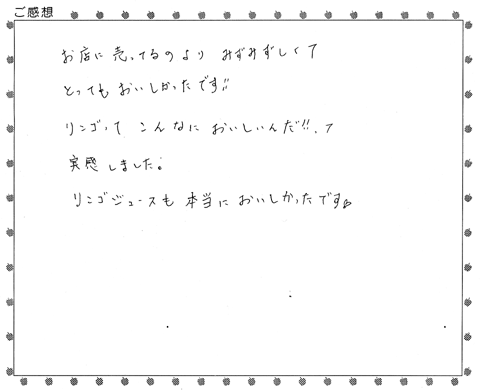 ご感想
お店に売ってるのより みずみずしくて
とっても おいしかったです!!
リンゴって こんなに おいしいんだ!!、て
実感しました。
リンゴジュースも 本当に おいしかったです